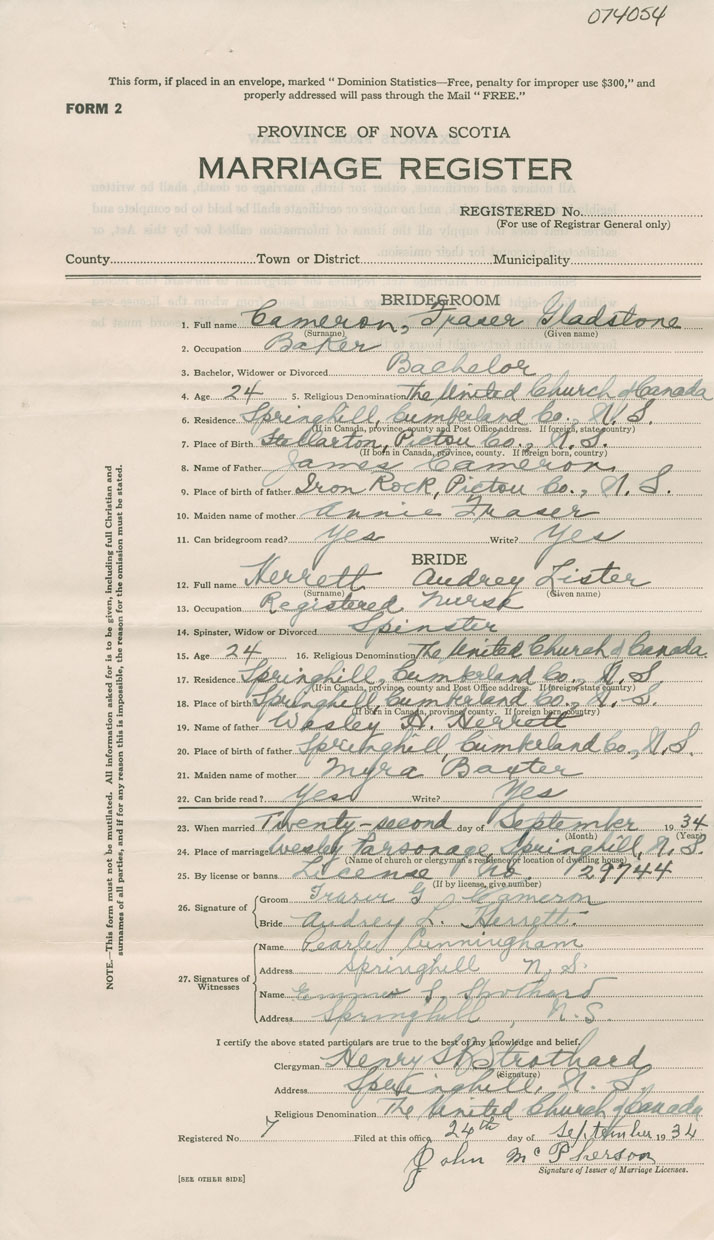 074054
This form, if placed in an envelope, marked “ Dominion Statistics—Free, penalty for improper use $300,” and
properly addressed will pass through the Mail “ FREE.”
FORM 2
PROVINCE OF NOVA SCOTIA
MARRIAGE REGISTER
REGISTERED No.
(For use of Registrar General only)
County Town or District Municipality
BRIDEGROOM
1. Full name Cameron, Fraser Gladstone
(Surname) (Given name)
2. Occupation Baker
3. Bachelor, Widower or Divorced Bachelor
4. Age 24 5. Religious Denomination The United Church of Canada
6. Residence Springhill, Cumberland Co., N. S.
(If in Canada, province, county and Post Office address. If foreign, state country)
7. Place of Birth Stellarton, Pictou Co., N. S.
(If born in Canada, province, county. If foreign born, country)
8. Name of Father James Cameron
9. Place of birth of father Iron Rock, Pictou Co., N. S.
10. Maiden name of mother Annie Fraser
11. Can bridegroom read? Yes Write? Yes
BRIDE
12. Full name Herrett Audrey Lister
(Surname) (Given name)
13. Occupation Registered Nurse
14. Spinster, Widow or Divorced Spinster
15. Age 24 16. Religious Denomination The United Church of Canada
17. Residence Springhill, Cumberland Co., N. S.
(If in Canada, province, county and Post Office address. If foreign, state country)
18. Place of birth Springhill, Cumberland Co., N. S.
(If born in Canada, province, county. If foreign born, country)
19. Name of father Wesley H. Herrett
20. Place of birth of father Springhill, Cumberland Co., N. S.
21. Maiden name of mother Myra Baxter
22. Can bride read? Yes Write? Yes
23. When married Twenty-second day of September 19 34
(Month) (Year)
24. Place of marriage Wesley Parsonage, Springhill, N. S.
(Name of church or clergyman's residence or location of dwelling house)
25. By license or banns License No. 29744
(If by license, give number)
26. Signature of Groom Fraser G Cameron
Bride Audrey L. Herrett.
27. Signatures of Witnesses
Name Pearle Cunningham
Address Springhill N. S.
Name Strothard
Address Springhill, N. S.
I certify the above stated particulars are true to the best of my knowledge and belief.
Clergyman Henry Strothard
(Signature)
Address Springhill, N. S.
Religious Denomination The United Church of Canada
Registered No. 7 Filed at this office 24th day of September 19 34
John McPherson
Signature of Issuer of Marriage Licenses.
[SEE OTHER SIDE]
NOTE.—This form must not be mutilated. All information asked for is to be given, including full Christian and
surnames of all parties, and if for any reason this is impossible, the reason for the omission must be stated.